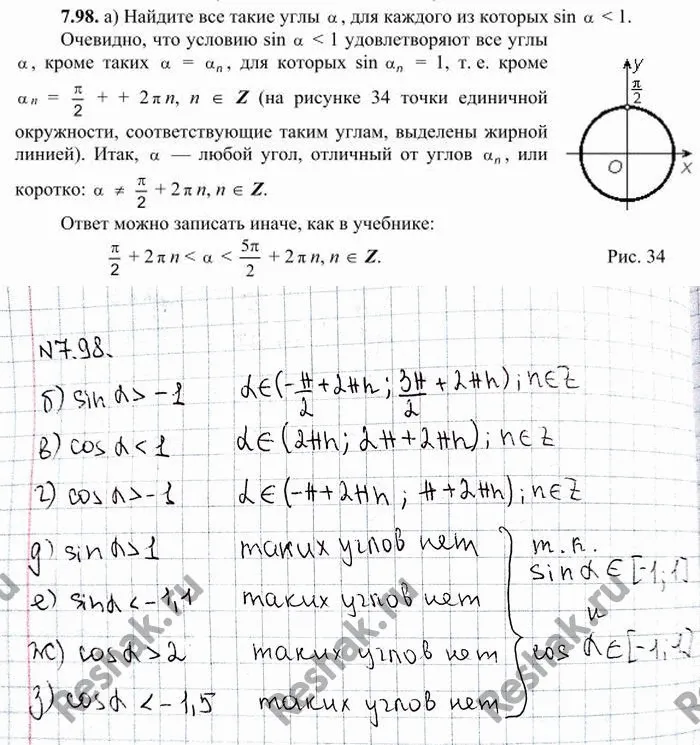 7.98. а) Найдите все такие углы α, для каждого из которых sin α < 1.
Очевидно, что условию sin α < 1 удовлетворяют все углы
α, кроме таких α = αₙ, для которых sin αₙ = 1, т. е. кроме
αₙ = π/2 + + 2πn, n ∈ Z (на рисунке 34 точки единичной
окружности, соответствующие таким углам, выделены жирной
линией). Итак, α — любой угол, отличный от углов αₙ, или
коротко: α ≠ π/2 + 2πn, n ∈ Z.
Ответ можно записать иначе, как в учебнике:
π/2 + 2πn < α < 5π/2 + 2πn, n ∈ Z.
y
π/2
O
x
Рис. 34
N7.98.
б) sin α > -1 α ∈ (-π/2 + 2πn ; 3π/2 + 2πn) ; n ∈ Z
в) cos α < 1 α ∈ (2πn ; 2π + 2πn) ; n ∈ Z
г) cos α > -1 α ∈ (-π + 2πn ; π + 2πn) ; n ∈ Z
д) sin α > 1 таких углов нет
е) sin α < -1,1 таких углов нет
ж) cos α > 2 таких углов нет
з) cos α < -1,5 таких углов нет
т.к.
sin α ∈ [-1; 1]
и
cos α ∈ [-1; 1]
Reshak.ru
Reshak.ru
Reshak.ru